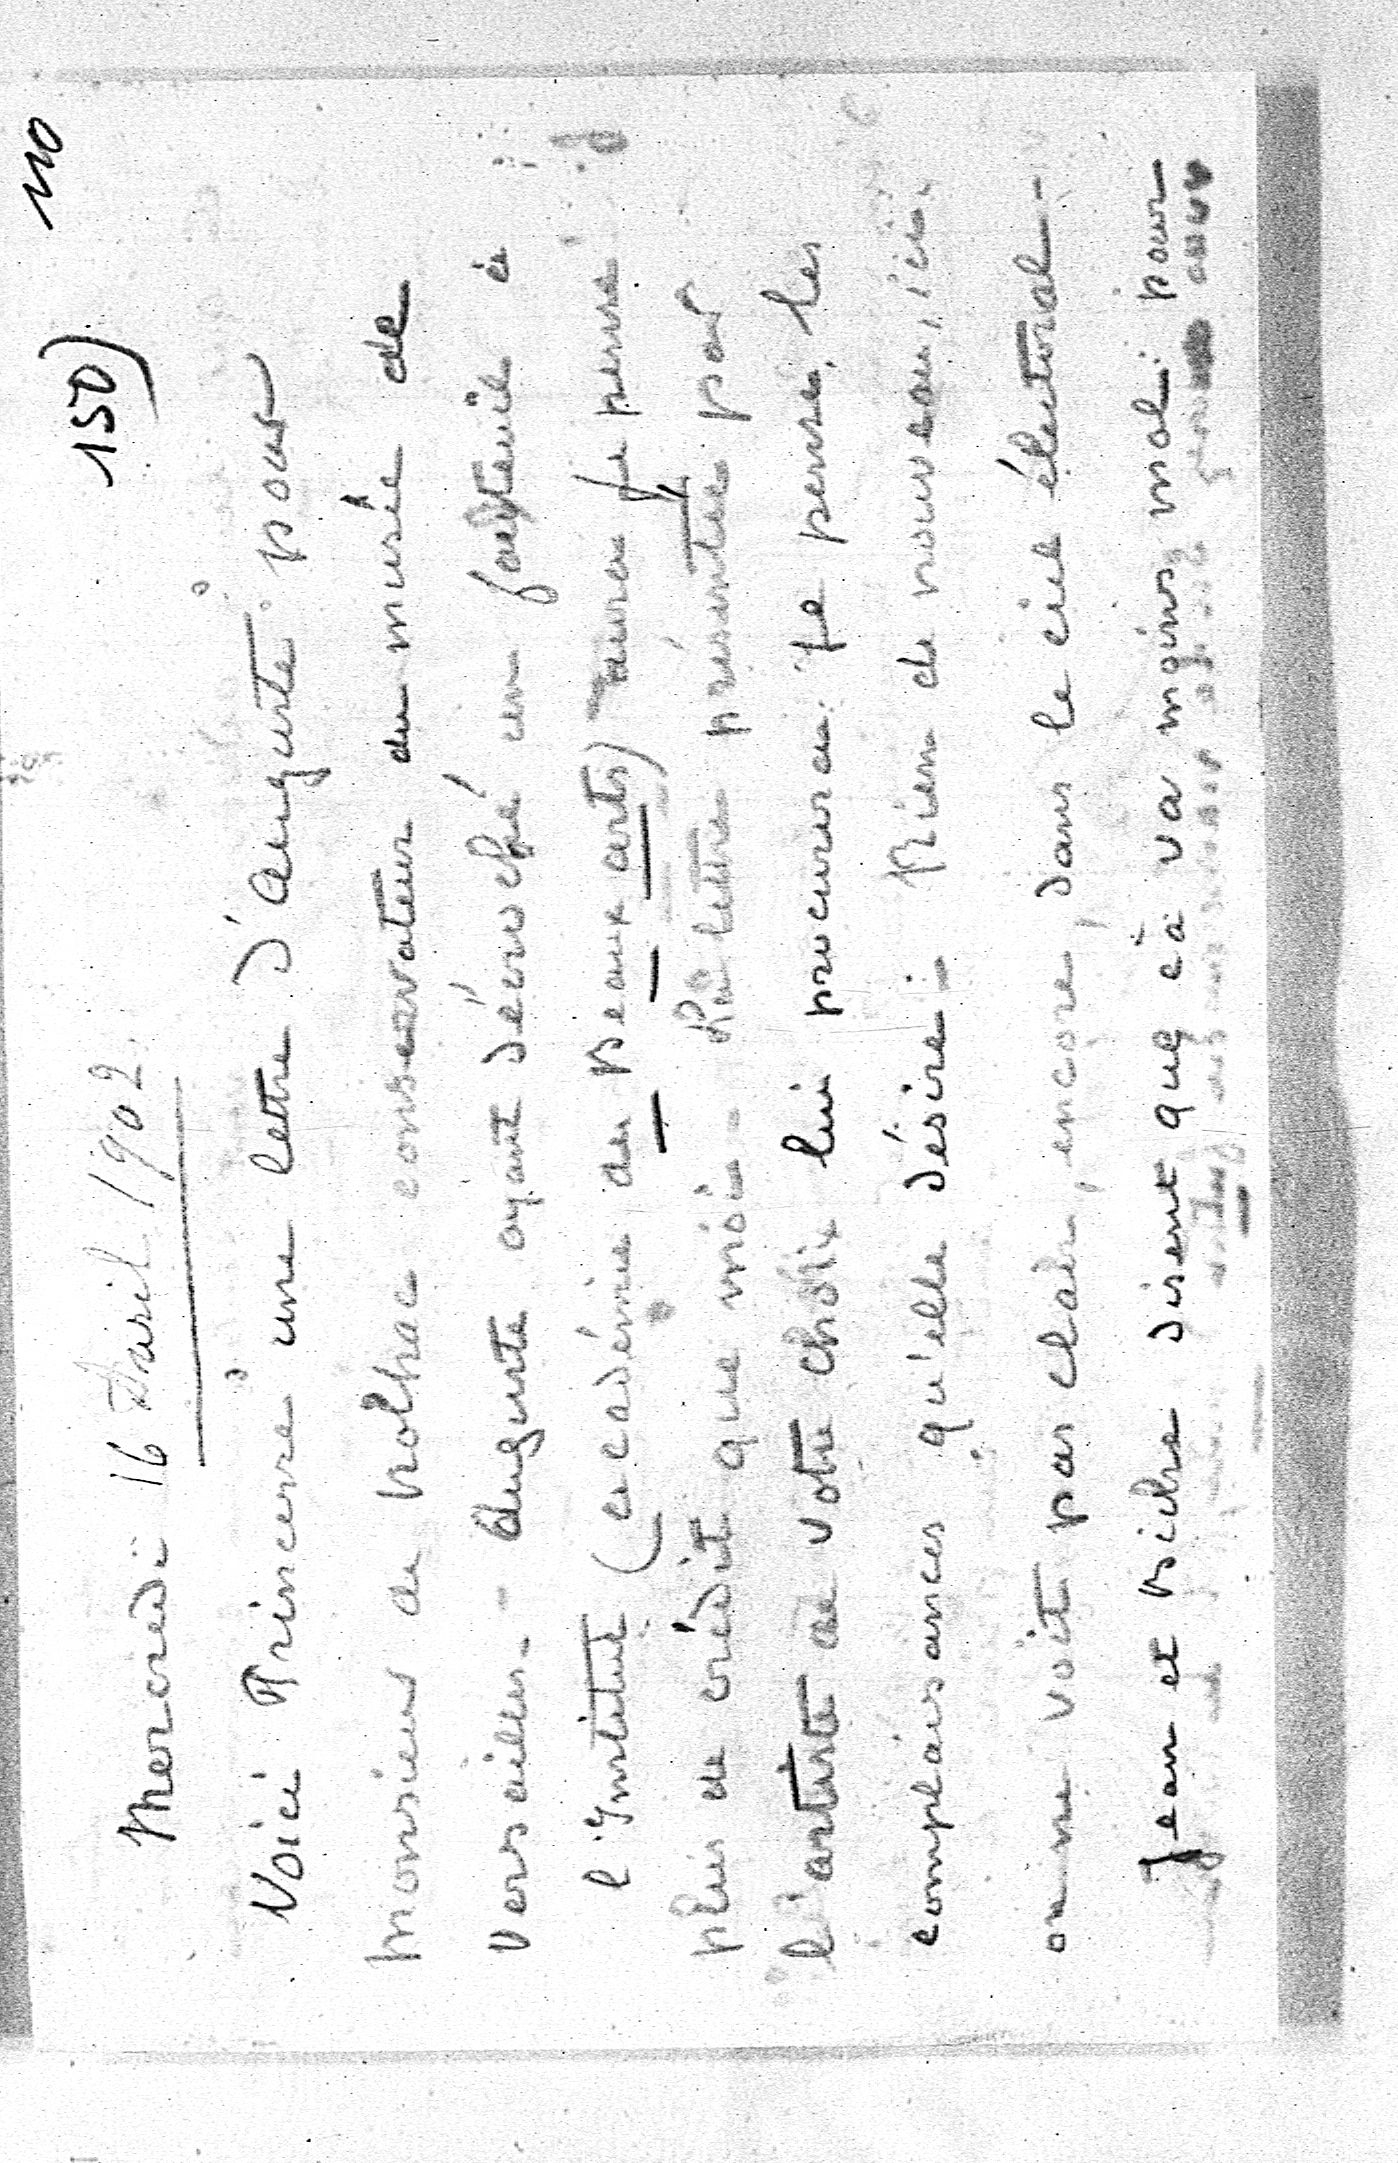 110
150)
Mercredi 16 Avril 1902.
Voici Princesse une lettre d'Auguste pour
monsieur de Nolhac conservateur du musée de
Versailles - Auguste ayant décroché un fauteuil à
l'Institut (académie des Beaux arts) aura je pense
plus de crédit que moi - La lettre présentée par
l'artiste de votre choix lui procurera je pense, les
complaisances qu'elle désire - Rien de nouveau, ici,
on ne voit pas clair, encore, dans le ciel électoral -
Jean et disent que cà va moins mal pour